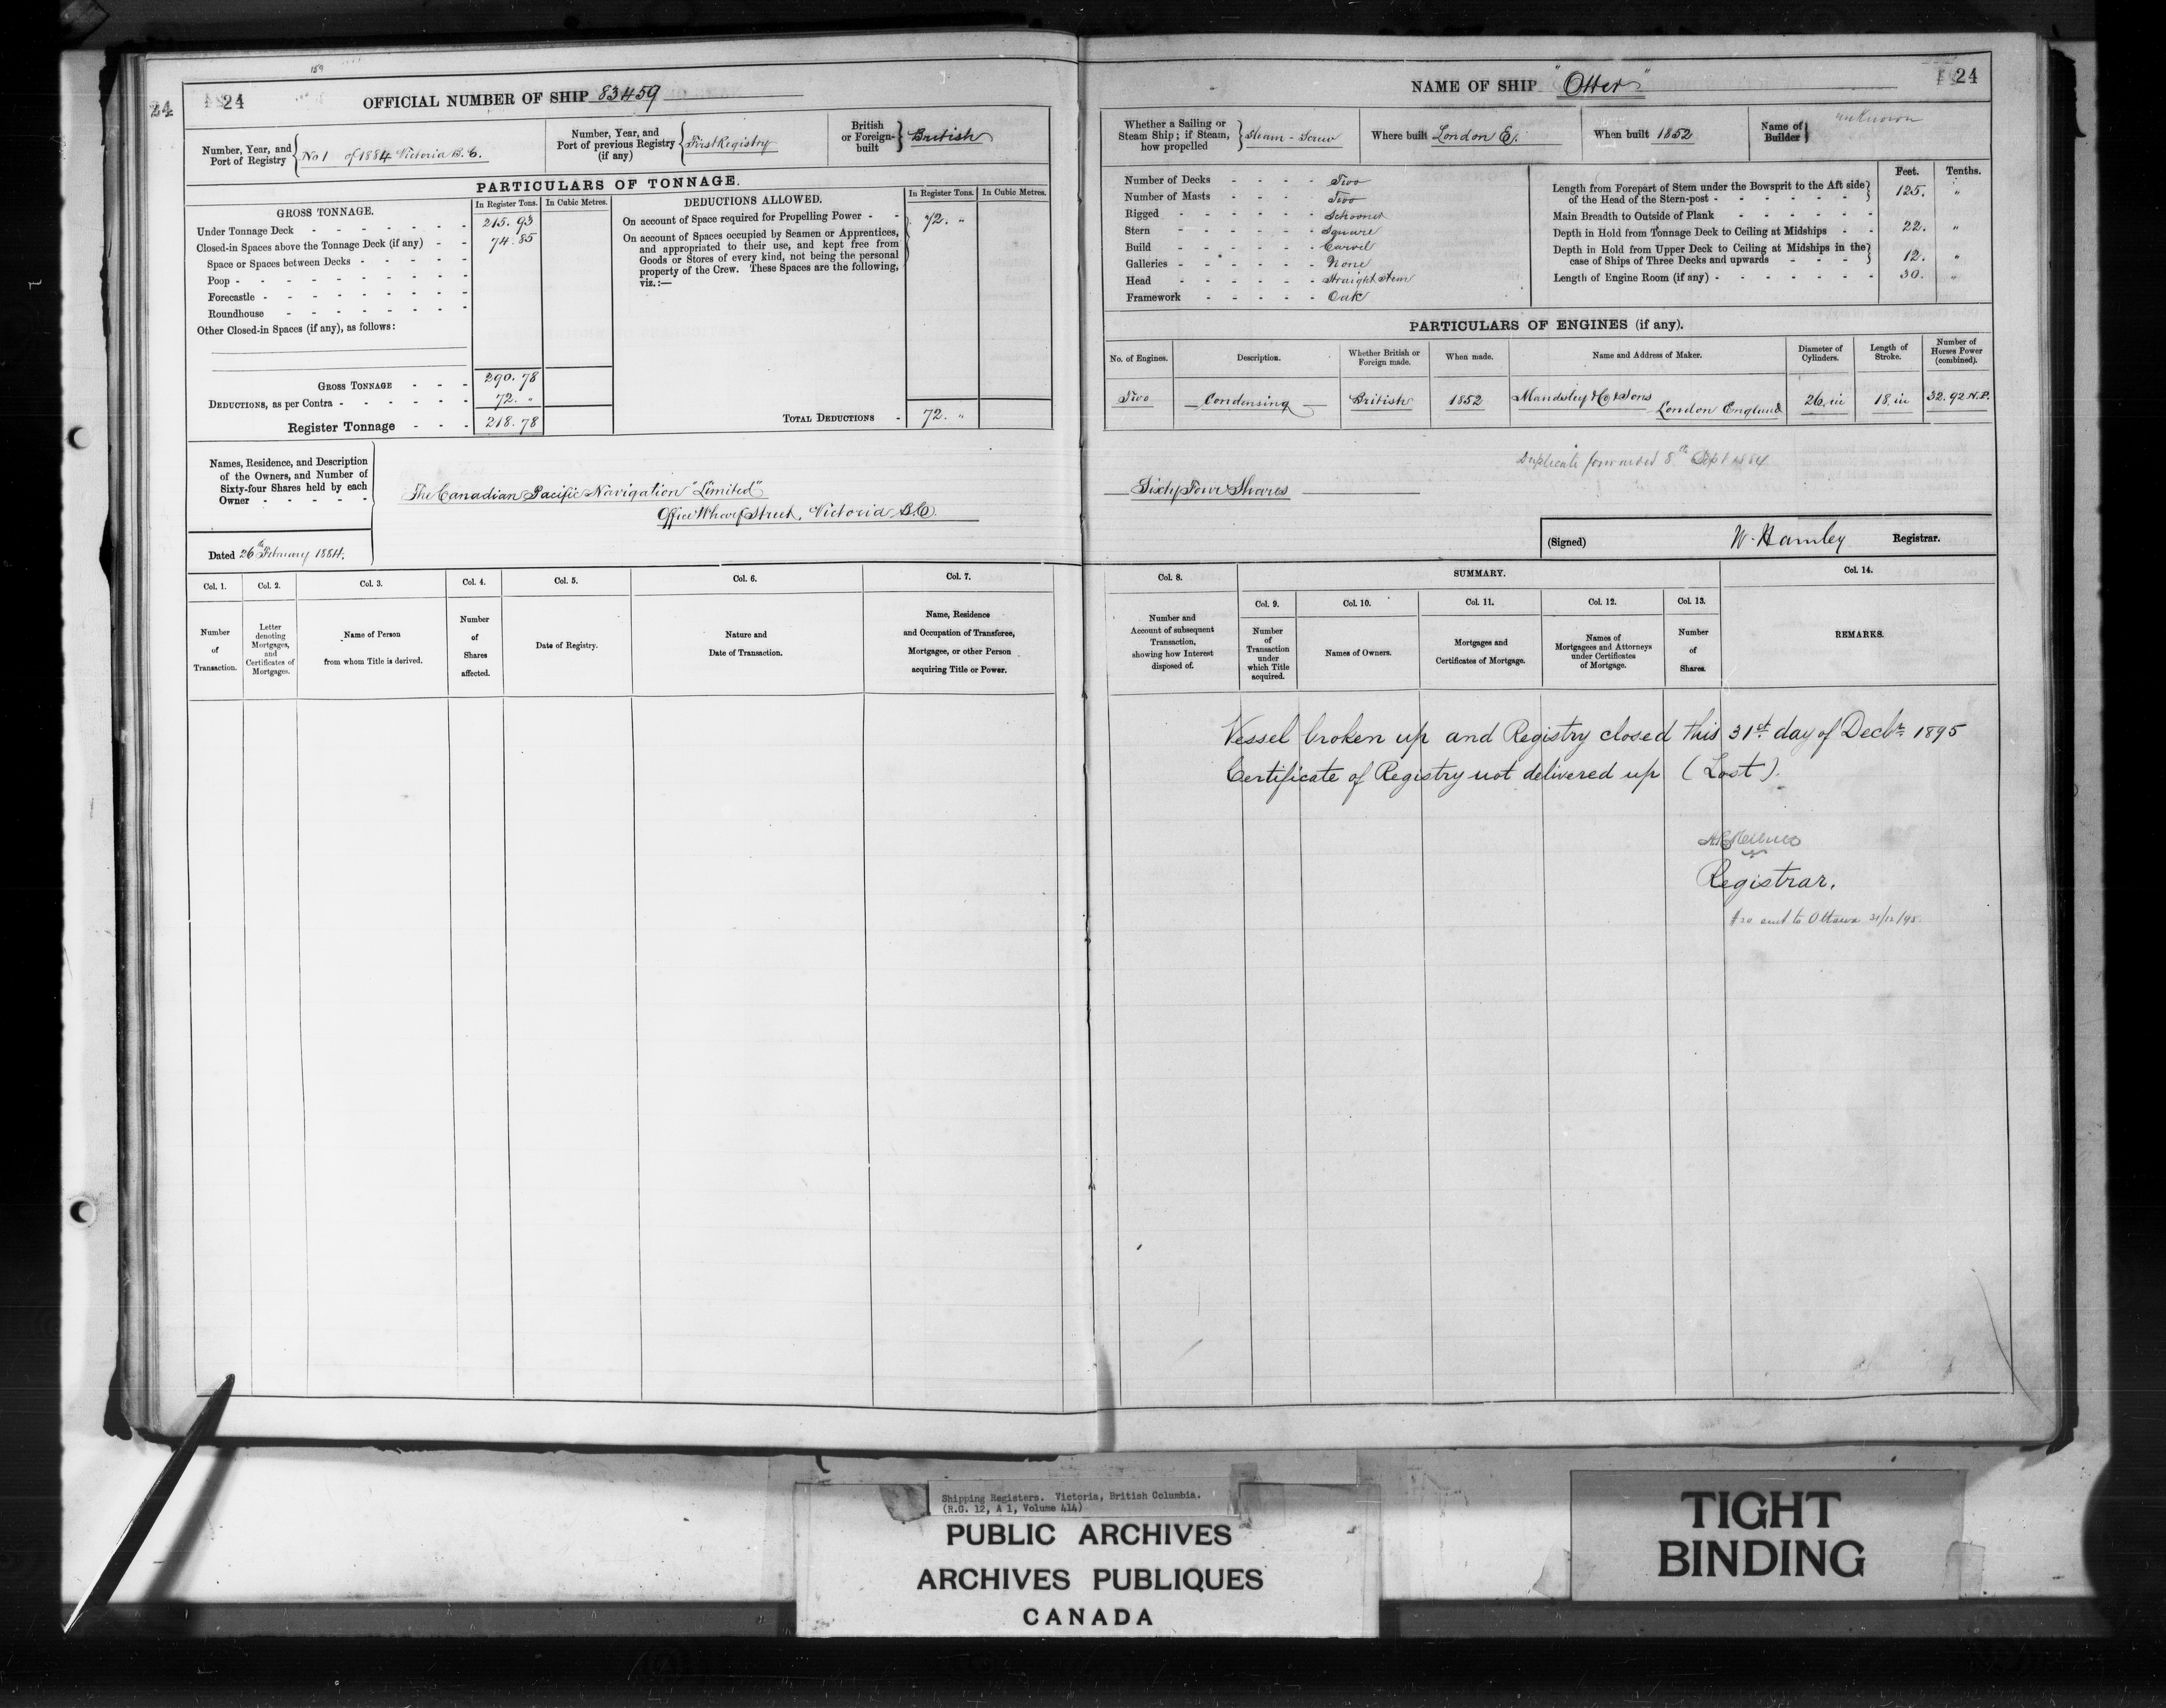 159
24 24 OFFICIAL NUMBER OF SHIP 83459
Number, Year, and Port of Registry } No 1 of 1884 Victoria B.C.
Number, Year, and Port of previous Registry (if any) { First Registry
British or Foreign-built } British
PARTICULARS OF TONNAGE.
GROSS TONNAGE. In Register Tons. In Cubic Metres.
Under Tonnage Deck - 215.93
Closed-in Spaces above the Tonnage Deck (if any) - 74.85
Space or Spaces between Decks -
Poop -
Forecastle -
Roundhouse
Other Closed-in Spaces (if any), as follows:
GROSS TONNAGE - 290.78
DEDUCTIONS, as per Contra - 72. "
Register Tonnage - 218.78
DEDUCTIONS ALLOWED. In Register Tons. In Cubic Metres.
On account of Space required for Propelling Power - 72. "
On account of Spaces occupied by Seamen or Apprentices,
and appropriated to their use, and kept free from
Goods or Stores of every kind, not being the personal
property of the Crew. These Spaces are the following,
viz.:—
TOTAL DEDUCTIONS - 72. "
Names, Residence, and Description
of the Owners, and Number of
Sixty-four Shares held by each
Owner -
The Canadian Pacific Navigation "Limited"
Office Wharf Street, Victoria B.C.
Dated 26th February 1884.
Col. 1. Col. 2. Col. 3. Col. 4. Col. 5. Col. 6. Col. 7.
Number of Transaction.
Letter denoting Mortgages, and Certificates of Mortgages.
Name of Person from whom Title is derived.
Number of Shares affected.
Date of Registry.
Nature and Date of Transaction.
Name, Residence and Occupation of Transferee, Mortgagee, or other Person acquiring Title or Power.
NAME OF SHIP "Otter" 24
Whether a Sailing or Steam Ship; if Steam, how propelled } Steam - Screw
Where built London E.
When built 1852
Name of Builder } unknown
Number of Decks - Two
Number of Masts - Two
Rigged - Schooner
Stern - Square
Build - Carvel
Galleries - None
Head - Straight Stem
Framework - Oak
Feet. Tenths.
Length from Forepart of Stem under the Bowsprit to the Aft side of the Head of the Stern-post - 125. "
Main Breadth to Outside of Plank
Depth in Hold from Tonnage Deck to Ceiling at Midships - 22. "
Depth in Hold from Upper Deck to Ceiling at Midships in the case of Ships of Three Decks and upwards - 12. "
Length of Engine Room (if any) - 30. "
PARTICULARS OF ENGINES (if any).
No. of Engines. Description. Whether British or Foreign made. When made. Name and Address of Maker. Diameter of Cylinders. Length of Stroke. Number of Horses Power (combined).
Two Condensing British 1852 Mandsley & Sons London England 26. in 18. in 32.92 N.P.
Duplicate forwarded 8th Sept 1884
Sixty Four Shares
(Signed) W. Hamley Registrar.
Col. 8. SUMMARY. Col. 14.
Col. 9. Col. 10. Col. 11. Col. 12. Col. 13.
Number and Account of subsequent Transaction, showing how Interest disposed of.
Number of Transaction under which Title acquired.
Names of Owners.
Mortgages and Certificates of Mortgage.
Names of Mortgagees and Attorneys under Certificates of Mortgage.
Number of Shares.
REMARKS.
Vessel broken up and Registry closed this 31st day of Decbr 1895
Certificate of Registry not delivered up (Lost).
Registrar.
sent to Ottawa 31/12/95.
Shipping Registers. Victoria, British Columbia.
(R.G. 12, A 1, Volume 414)
PUBLIC ARCHIVES
ARCHIVES PUBLIQUES
CANADA
TIGHT
BINDING